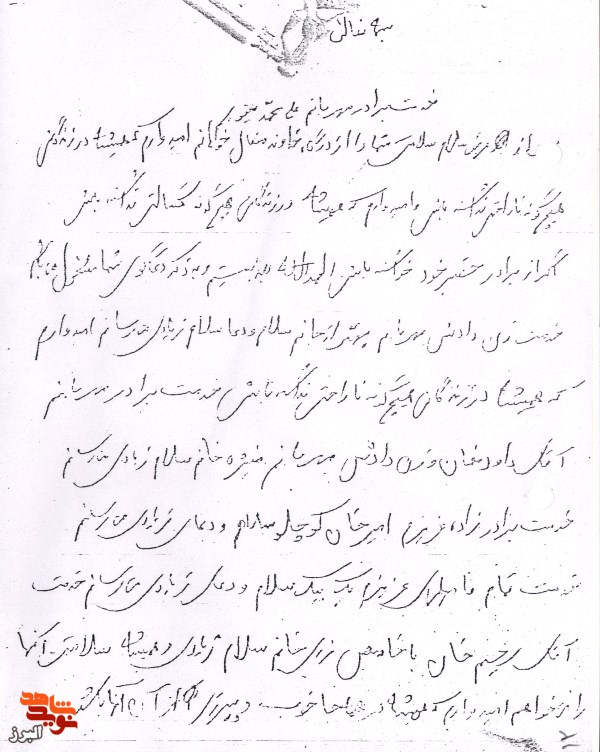 بسمه تعالی
خدمت برادر مهربانم علی محمد
پس از عرض سلام سلامتی شما را از درگاه خداوند متعال خواهانم امیدوارم که همیشه در زندگی
هیچگونه ناراحتی نداشته باشی و امیدوارم که همیشه در زندگی هیچگونه کسالتی نداشته باشی
اگر از برادر حقیر خود خواسته باشی الحمدالله بد نیستم و به ذکر دعاگوی شما مشغول می‌باشم
خدمت زن داداش مهربانم بهتر از جانم سلام و دعا سلام زیادی میرسانم امیدوارم
که همیشه در زندگی هیچگونه ناراحتی نداشته باشی خدمت برادر مهربانم
آقای داود خان و زن داداش مهربانم منیژه خانم سلام زیادی میرسانم
خدمت برادر زاده عزیزم امیر خان کوچلو سلام و دعای زیادی میرسانم
خدمت تمام فامیلهای عزیزم یک بیک سلام و دعای زیادی میرسانم خدمت
آقای رحیم خان با خانمش زری خانم سلام زیادی و همیشه سلامتی آنها
را خواهم امیدوارم که همیشه در همه جا خوب و پیروزی
۲
شاهد
نوید
البرز